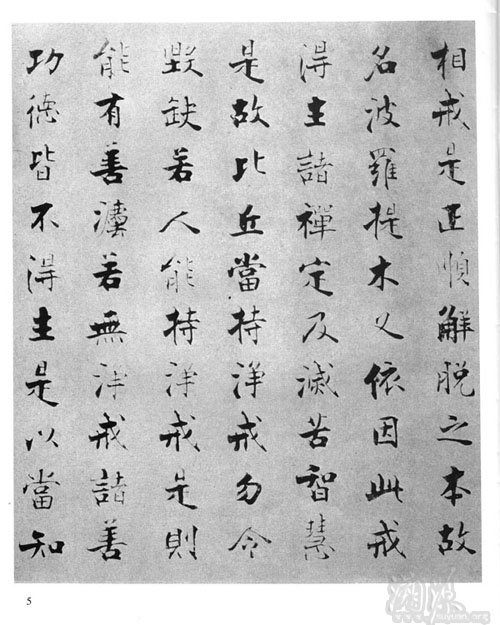 相戒是正順解脫之本故
名波羅提木叉依因此戒
得生諸禪定及滅苦智慧
是故比丘當持淨戒勿令
毀缺若人能持淨戒是則
能有善灋若無淨戒諸善
功德皆不得生是以當知
5